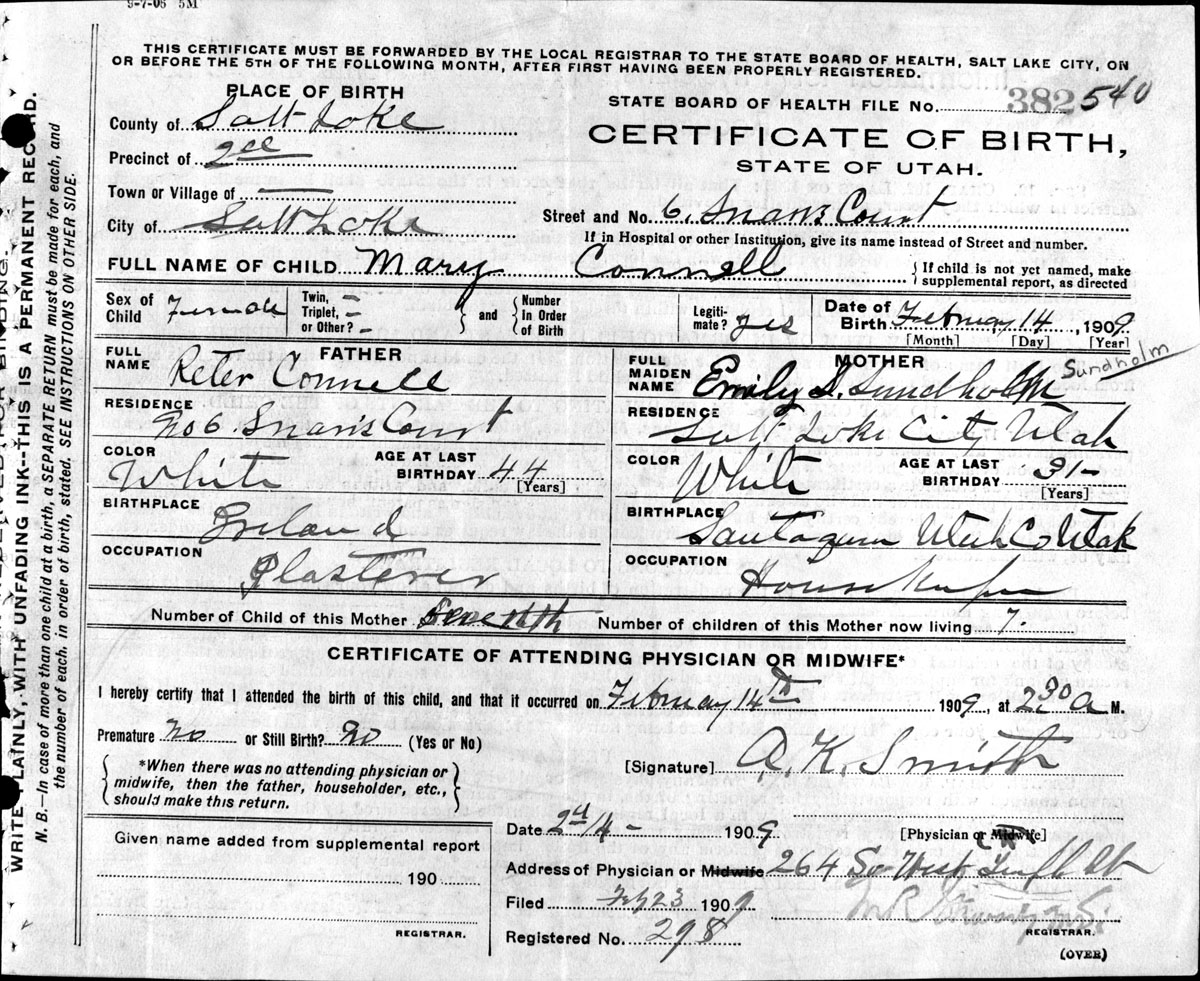 9-7-06 5M
THIS CERTIFICATE MUST BE FORWARDED BY THE LOCAL REGISTRAR TO THE STATE BOARD OF HEALTH, SALT LAKE CITY, ON
OR BEFORE THE 5TH OF THE FOLLOWING MONTH, AFTER FIRST HAVING BEEN PROPERLY REGISTERED.
PLACE OF BIRTH
County of Salt Lake
Precinct of 2nd
Town or Village of —
City of Salt Lake
STATE BOARD OF HEALTH FILE No. 382 540
CERTIFICATE OF BIRTH,
STATE OF UTAH.
Street and No. 6. Court
If in Hospital or other Institution, give its name instead of Street and number.
FULL NAME OF CHILD Mary Connell
If child is not yet named, make
supplemental report, as directed
Sex of Child Female
Twin, Triplet, or Other? –
and
Number In Order of Birth
Legitimate? yes
Date of Birth February 14, 1909
[Month] [Day] [Year]
FATHER
FULL NAME Peter Connell
RESIDENCE No 6 Court
COLOR White
AGE AT LAST BIRTHDAY 44
[Years]
BIRTHPLACE Ireland
OCCUPATION Plasterer
MOTHER
FULL MAIDEN NAME Emily S. Sundholm
Sundholm
RESIDENCE Salt Lake City Utah
COLOR White
AGE AT LAST BIRTHDAY 31-
[Years]
BIRTHPLACE Santaquin Utah Co Utah
OCCUPATION House Keeper
Number of Child of this Mother Seventh
Number of children of this Mother now living 7.
CERTIFICATE OF ATTENDING PHYSICIAN OR MIDWIFE*
I hereby certify that I attended the birth of this child, and that it occurred on February 14th 1909, at 2 30 a M.
Premature No or Still Birth? No (Yes or No)
*When there was no attending physician or
midwife, then the father, householder, etc.,
should make this return.
[Signature] A. K. Smith
Given name added from supplemental report
190
REGISTRAR.
Date 2/14 - 1909
[Physician or Midwife]
Address of Physician or Midwife 264 So West Temple St
Filed Feb 23 1909
Registered No. 298
REGISTRAR.
(OVER)
WRITE PLAINLY, WITH UNFADING INK--THIS IS A PERMANENT RECORD.
N. B.—In case of more than one child at a birth, a SEPARATE RETURN must be made for each, and
the number of each. in order of birth, stated. SEE INSTRUCTIONS ON OTHER SIDE.